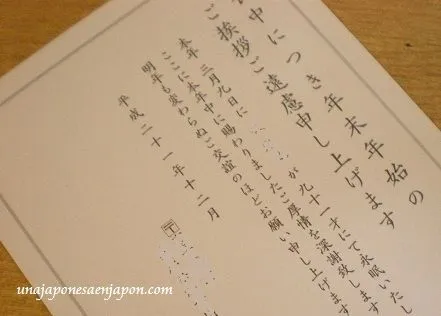 中につき年末年始の
ご挨拶ご遠慮申し上げます
本年三月九日に が九十一才にて永眠いたし
ここに本年中に賜わりましたご厚情を深謝致します
明年も変わらぬご交誼のほどお願い申し上げます
平成二十一年十二月
〒
unajaponesaenjapon.com